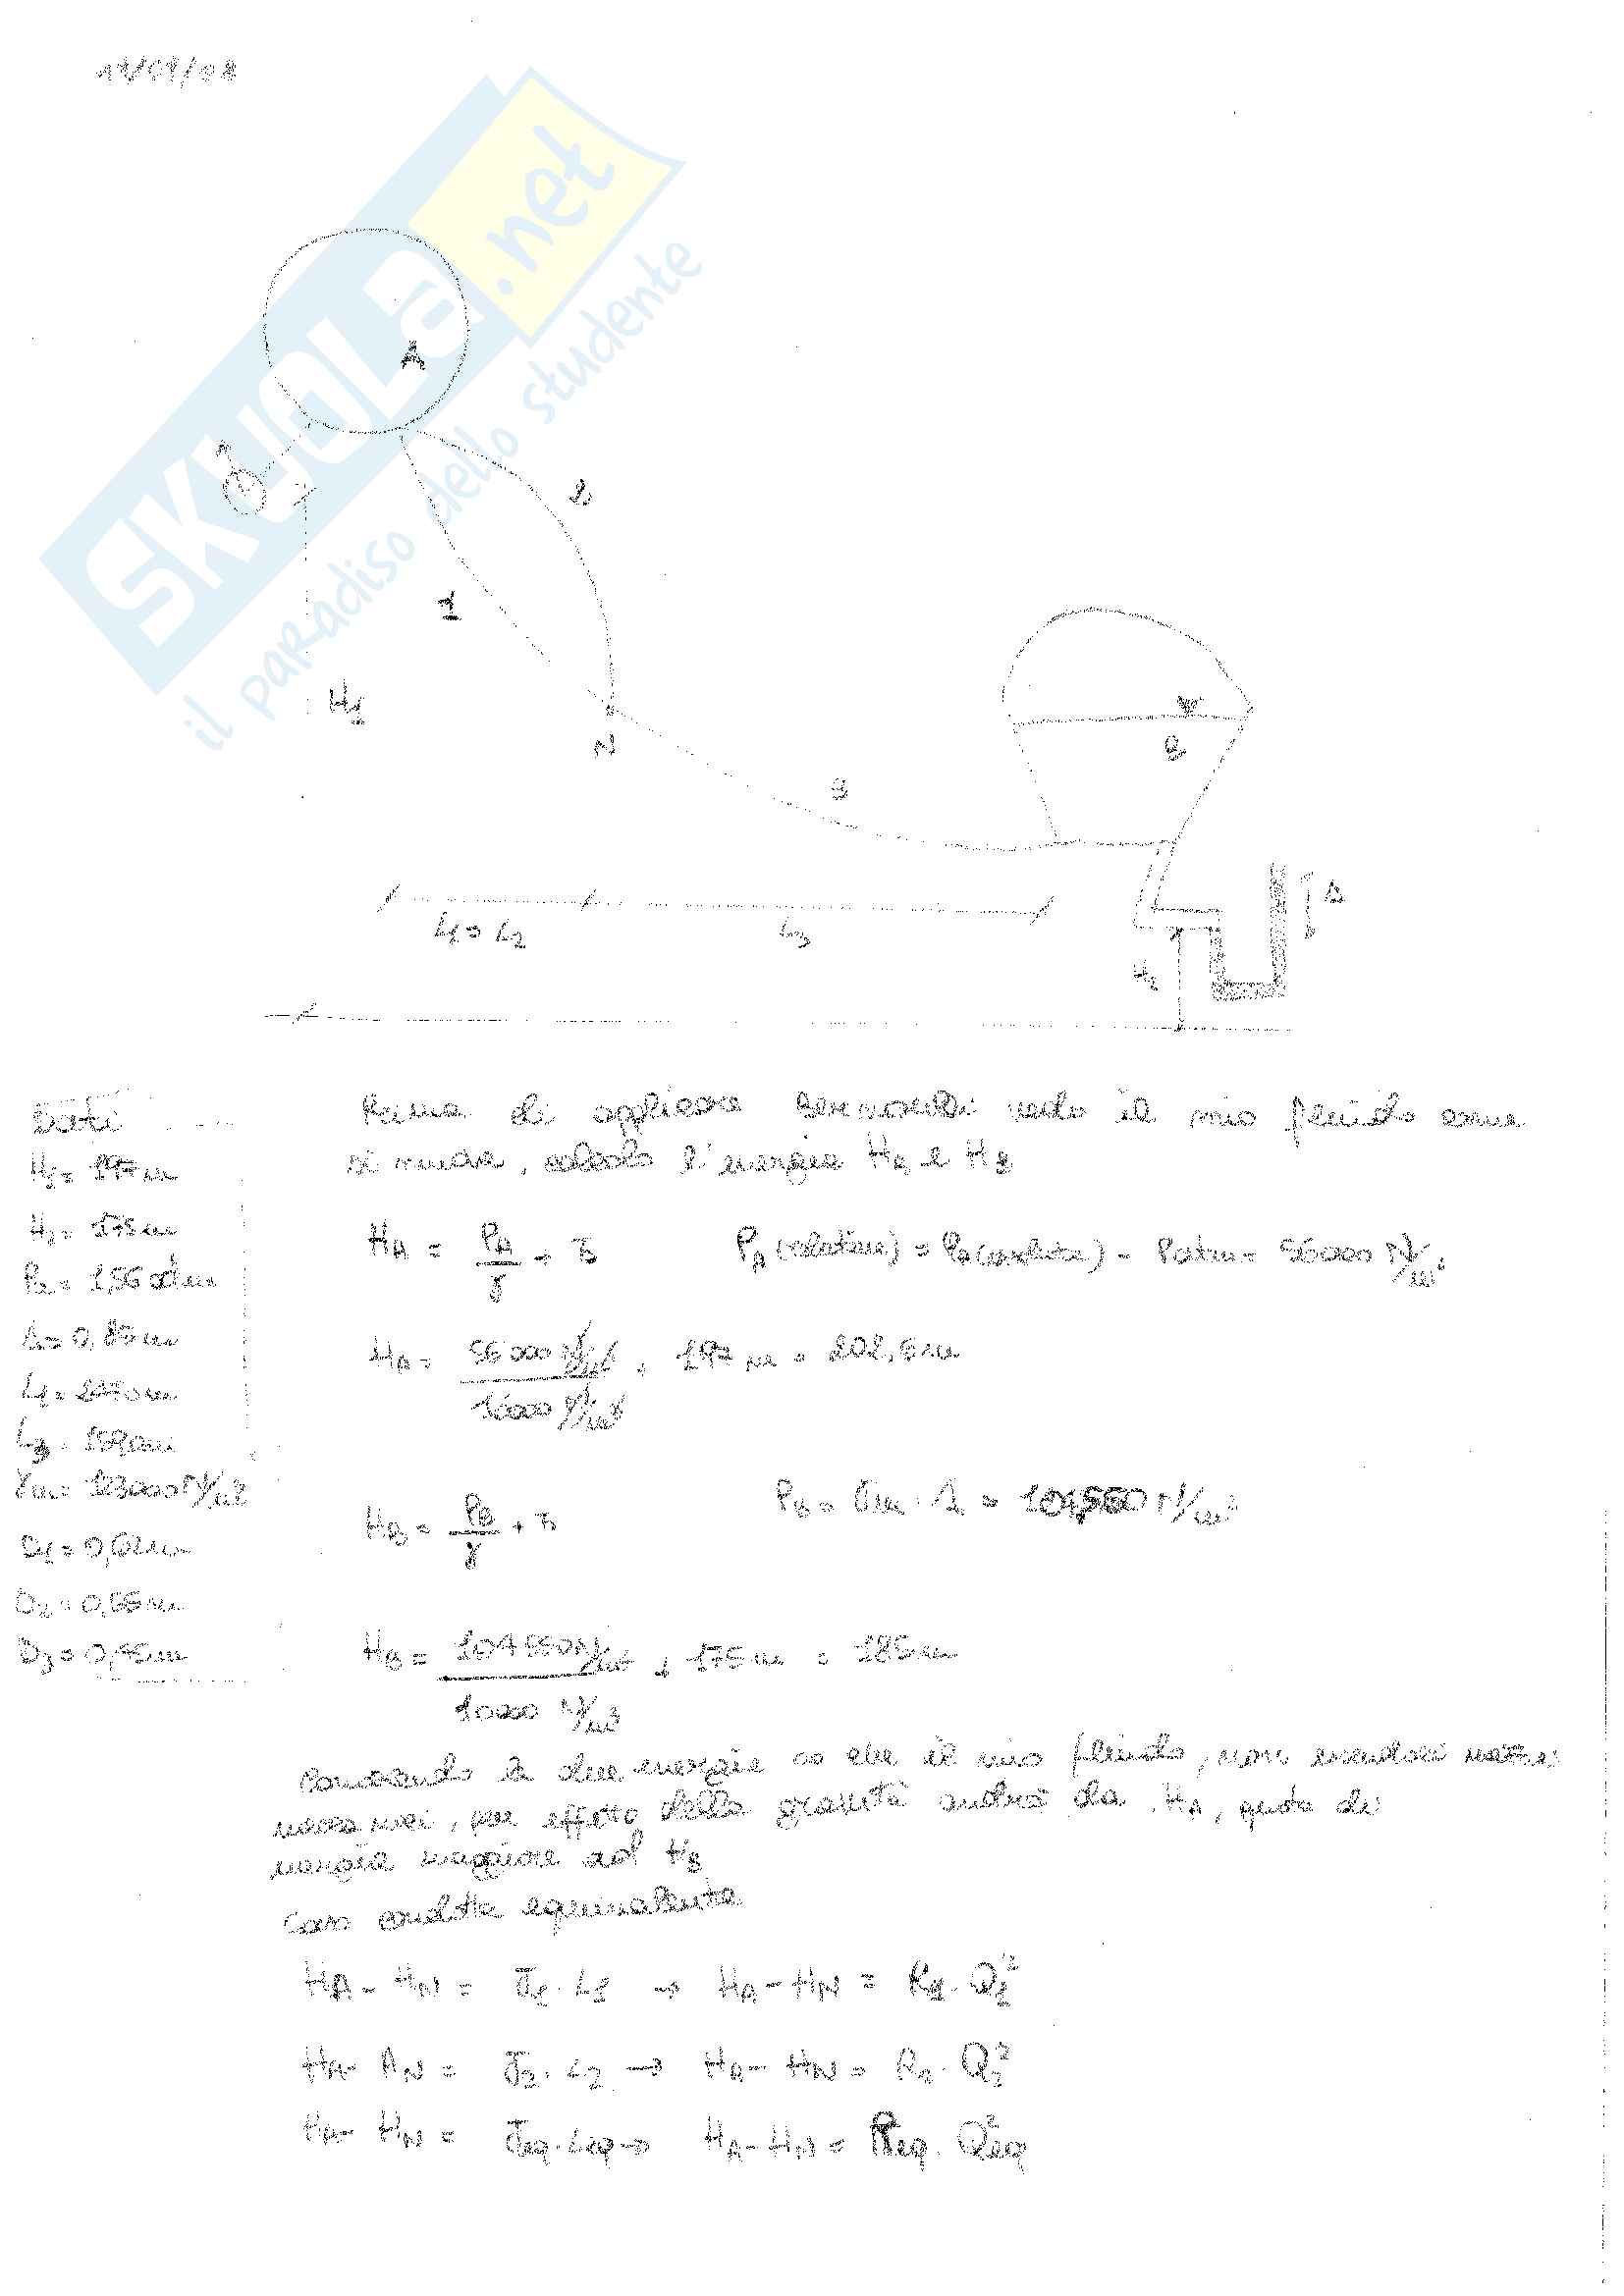 SKUOLa.net
il paradiso dello studente
A
2
1
H1
N
B
3
Δ
L1 = L2
L3
H2
Dati
H1 = 197 m
H2 = 175 m
PA = 1,56 atm
Δ = 0,85 m
L3 =
γm = 123000 N/m³
D2 = 0,55 m
Prima di applicare Bernoulli vedo il mio fluido come
si muove, calcolo l'energia HA e HB
HA = PA/γ + z
PA (relativa) = PA (assoluta) - Patm = 56000 N/m²
HA = 56000 N/m² / 10000 N/m³ + 197 m = 202,6 m
HB = PB/γ + z
PB = γm · Δ = 104550 N/m²
HB = 104550 N/m² / 10000 N/m³ + 175 m = 185 m
Conoscendo le due energie so che il mio fluido, non essendoci
per effetto della gravità andrà da HA, quota di
energia maggiore ad HB
Caso condotta equivalente
HA - HN = J1 · L1 → HA - HN = R1 · Q1²
HA - HN = J2 · L2 → HA - HN = R2 · Q2²
HA - HN = Jeq · Leq → HA - HN = Req · Q²eq